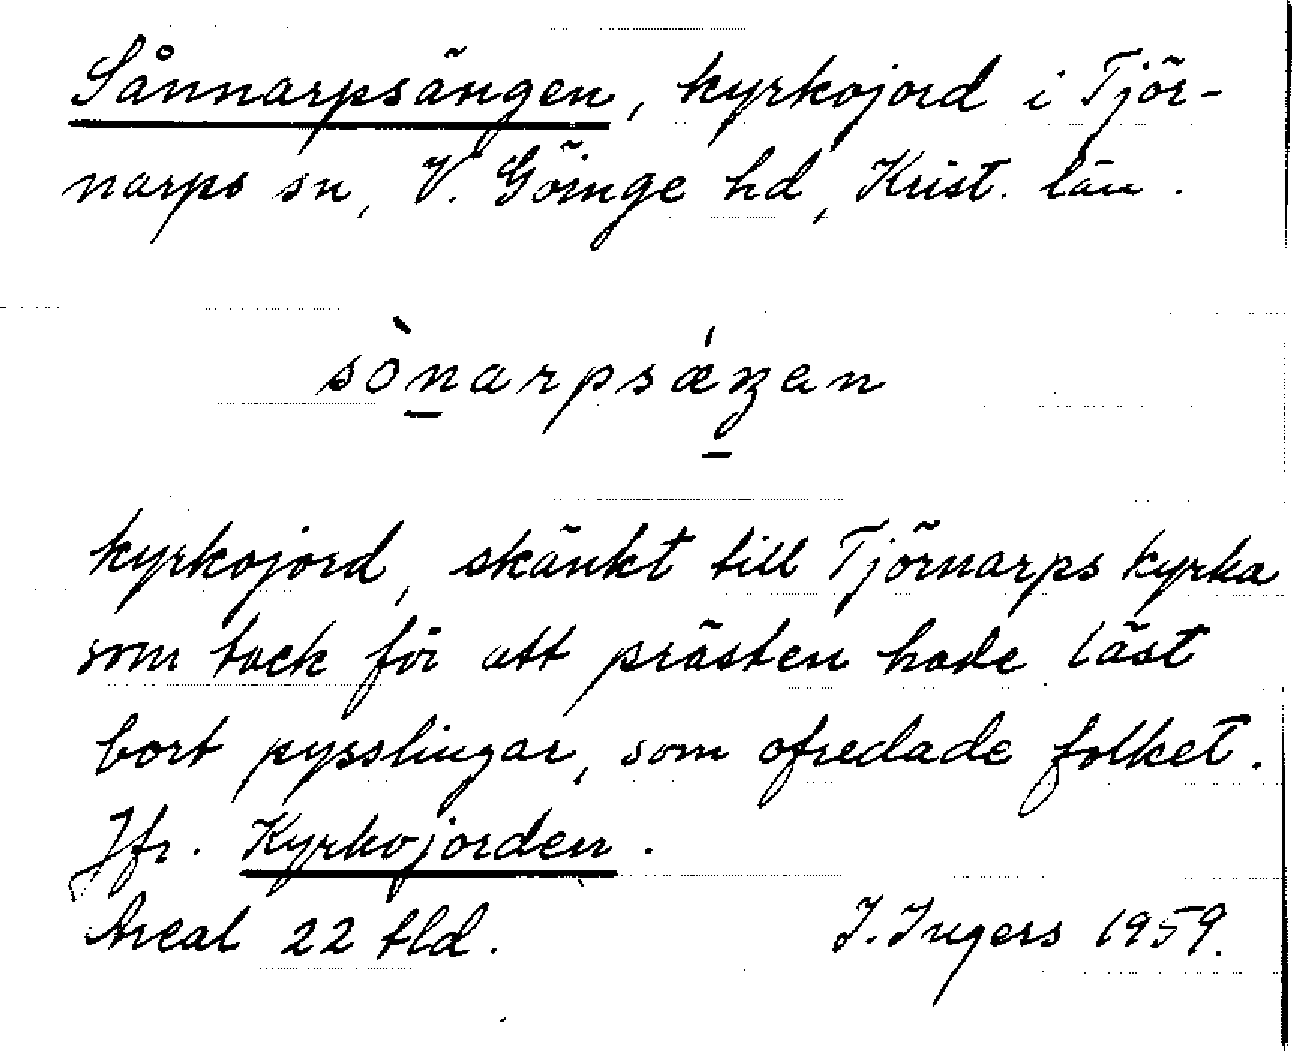 Sånnarpsängen, kyrkojord i Tjör-
narps sn, V. Göinge hd, Krist. län.
sònarpsáŋan
kyrkojord, skänkt till Tjörnarps kyrka
som tack för att prästen hade läst
bort pysslingar, som ofredade folket.
Jfr. Kyrkojorden.
Areal 22 tld.
I. Ingers 1959.